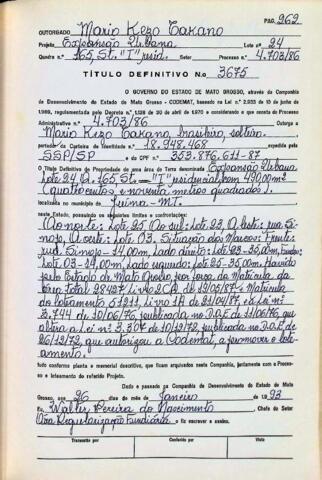 PÁG. 262
OUTORGADO Mario Kezo Takano
Projeto Expansão Urbana Lote nº 24
Quadra nº 165, St. "I" resid. Setor Processo nº 4.703/86
TÍTULO DEFINITIVO N.o 3675
O GOVERNO DO ESTADO DE MATO GROSSO, através da Companhia
de Desenvolvimento do Estado de Mato Grosso - CODEMAT, baseado na Lei n.º
regulamentada pelo Decreto n.º 1.138 de 30 de abril de 1970 e considerando o que consta do Processo
Administrativo n.º 4.703/86 Outorga a
Mario Kezo Takano, brasileiro, solteiro,
portador da Carteira de Identidade n.º 18.948.468 expedida pela
SSP/SP e do CPF n.º 353.876.611-87
O Título Definitivo de Propriedade de uma área de Terra denominada Expansão Urbana
Lote 24 Q. 165, St. "I" residencial com 490,00 m²
(quatrocentos e noventa metros quadrados).
localizada no município de Juína - MT.
neste Estado, possuindo os seguintes limites e confrontações:
(Ao norte: Lote 25, Ao sul: Lote 23, A leste: rua
A oeste: Lote 03. Situação dos Marcos: Frente:
14,00m, Lado direito: Lote 23-35,00m, Fundos:
Lote 03-14,00m, Lado esquerdo: Lote 25-35,00m. Havido
pelo Estado de Mato Grosso, por força da Matrícula da
área total 28427, Livro 2 de 12/05/87 e Matrícula
do Loteamento 51211, Livro 1A de 21/04/87, e Lei nº
3.744 de 10/06/76, publicada no D.O.E. de 11/06/76, que
altera a Lei nº 3.307 de 10/12/72, publicada no D.O.E. de
26/12/72, que autorizou a Codemat, a promover o lote-
amento.
tudo conforme planta e memorial descritivo, que ficam arquivados nesta Companhia, juntamente com o Pro-
cesso e loteamento do referido Projeto.
Dado e passado na Companhia de Desenvolvimento do Estado de Mato
Grosso, aos 26 dias do mês de Janeiro de 1993
Eu, Walter Pereira do Nascimento Chefe do Setor
Regularização Fundiária o fiz escrever e assino.
Transcrito por Conferido por Visto